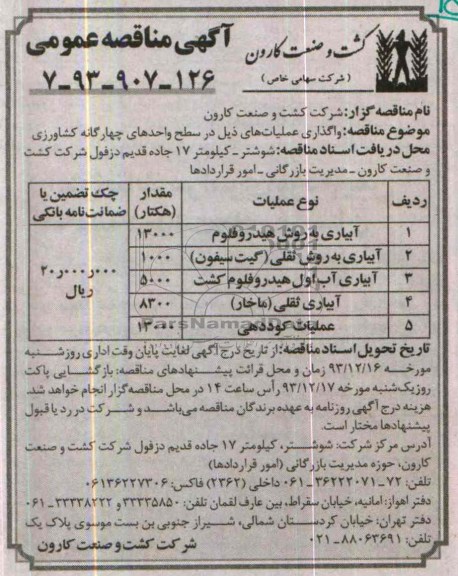 آگهی مناقصه عمومی
۷-۹۳-۹۰۷-۱۲۶
کشت و صنعت کارون
(شرکت سهامی خاص)
نام مناقصه گزار: شرکت کشت و صنعت کارون
موضوع مناقصه: واگذاری عملیات‌های ذیل در سطح واحدهای چهارگانه کشاورزی
محل دریافت اسناد مناقصه: شوشتر ـ کیلومتر ۱۷ جاده قدیم دزفول شرکت کشت
و صنعت کارون ـ مدیریت بازرگانی ـ امور قراردادها
ردیف نوع عملیات مقدار (هکتار) چک تضمین یا ضمانت‌نامه بانکی
۱ آبیاری به روش هیدروفلوم ۱۳۰۰۰
۲ آبیاری به روش ثقلی (گیت سیفون) ۱۰۰۰
۳ آبیاری آب اول هیدروفلوم کشت ۵۰۰۰
۴ آبیاری ثقلی (ماخار) ۸۳۰۰
۵ عملیات کوددهی ۱۳۰۰۰
۲۰ر۰۰۰ر۰۰۰ ریال
ParsNamadData
تاریخ تحویل اسناد مناقصه: از تاریخ درج آگهی لغایت پایان وقت اداری روز شنبه
مورخه ۹۳/۱۲/۱۶ زمان و محل قرائت پیشنهادهای مناقصه: بازگشایی پاکت
روز یک‌شنبه مورخه ۹۳/۱۲/۱۷ رأس ساعت ۱۴ در محل مناقصه‌گزار انجام خواهد شد.
هزینه درج آگهی روزنامه به عهده برندگان مناقصه می‌باشد و شرکت در رد یا قبول
پیشنهادها مختار است.
آدرس مرکز شرکت: شوشتر، کیلومتر ۱۷ جاده قدیم دزفول شرکت کشت و صنعت
کارون، حوزه مدیریت بازرگانی (امور قراردادها)
تلفن: ۷۲-۳۶۲۲۲۰۷۱-۰۶۱ داخلی (۲۳۶۲) فاکس: ۰۶۱۳۶۲۲۷۳۰۶
دفتر اهواز: امانیه، خیابان سقراط، بین عارف لقمان تلفن: ۳۳۳۳۵۸۵۰ و ۳۳۳۳۸۲۲۲-۰۶۱
دفتر تهران: خیابان کردستان شمالی، شیراز جنوبی بن بست موسوی پلاک یک
تلفن: ۸۸۰۶۳۶۹۱-۰۲۱
شرکت کشت و صنعت کارون